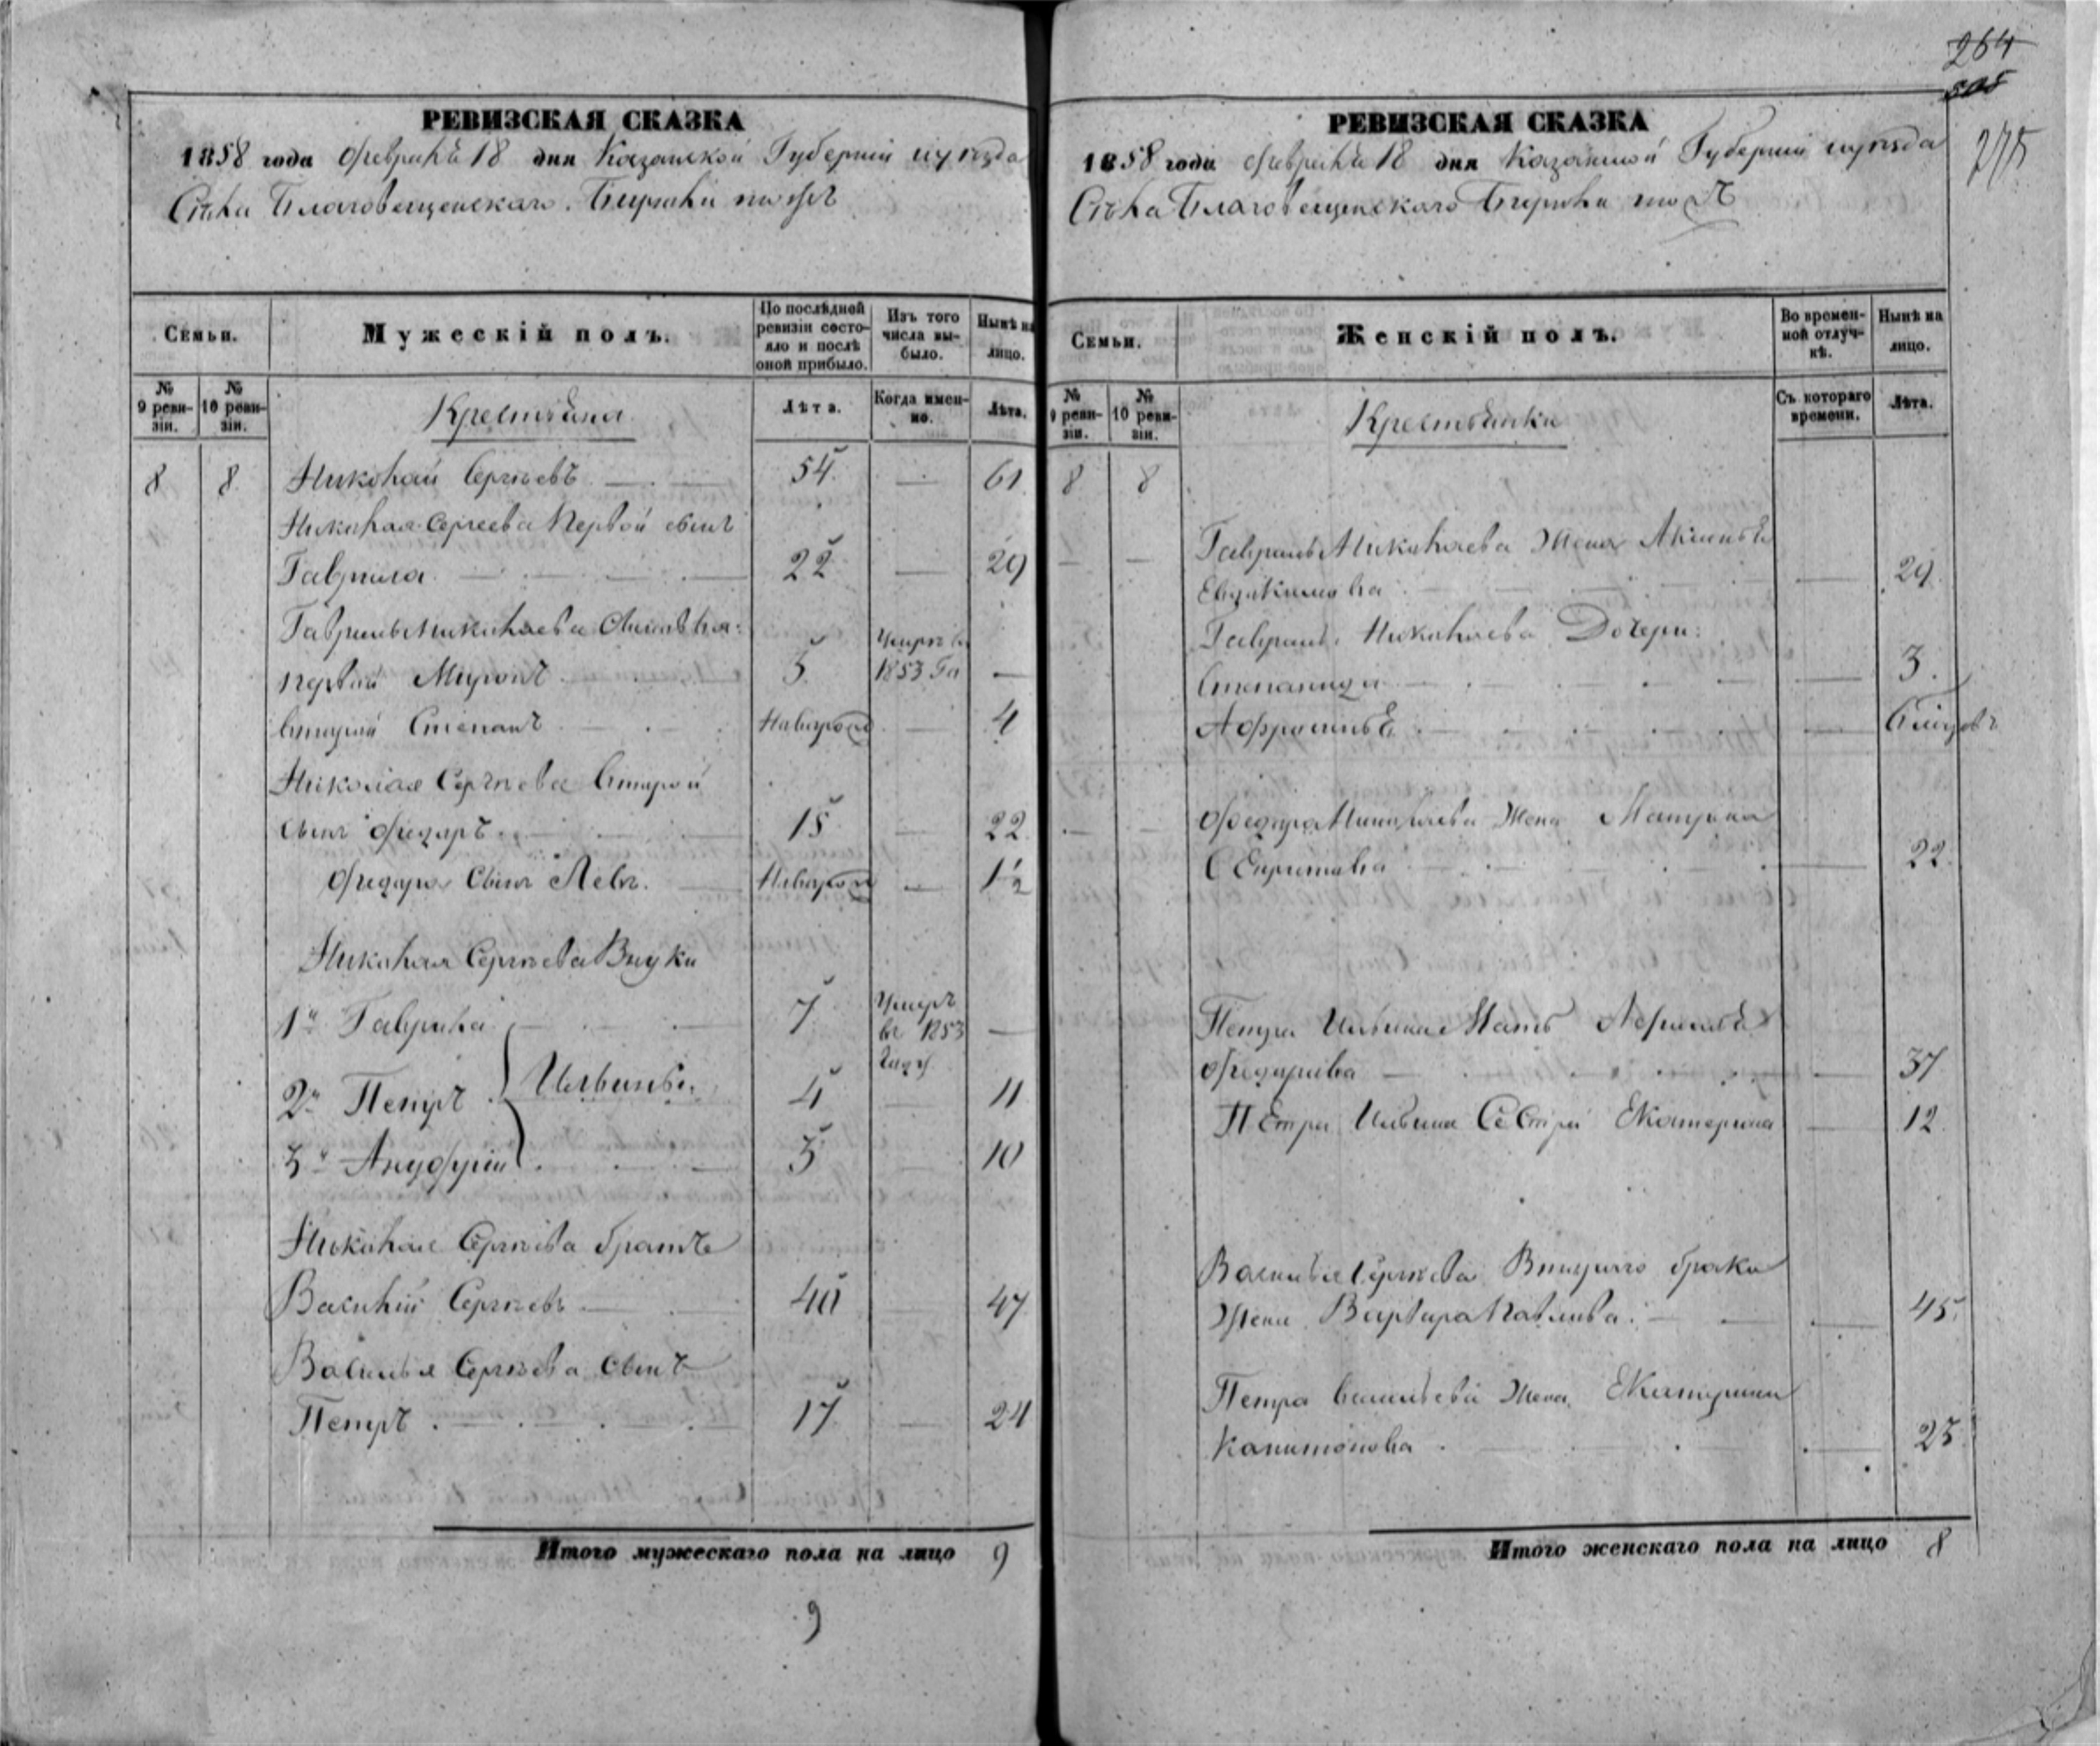 264
505
275
РЕВИЗСКАЯ СКАЗКА
1858 года февраля 18 дня Казанской Губернии и уѣзда
Села Благовещенскаго Бирюли тожъ
Семьи.
Мужескій полъ.
По послѣдней ревизіи состояло и послѣ оной прибыло.
Изъ того числа выбыло.
Нынѣ на лицо.
№ 9 ревизіи.
№ 10 ревизіи.
Крестьяна
Лѣта.
Когда именно.
Лѣта.
8 8 Николай Сергѣевъ 54 61
Николая Сергеева Первой сынъ
Гаврила 22 29
Гаврилы Николаева Сыновья:
первый Миронъ 5 Умеръ въ 1853 Го
вторый Степанъ Новорож 4
Николая Сергѣева Вторый
сынъ Федоръ 15 22
Федора Сынъ Левъ. Новорож 1/2
Николая Сергѣева Внуки
1й Гаврила 7 Умеръ въ 1853 году
2й Петръ Ильины 4 11
3й Ануфрій 3 10
Николая Сергѣева братъ
Василій Сергѣевъ 40 47
Василья Сергѣева Сынъ
Петръ 17 24
Итого мужескаго пола на лицо 9
9
РЕВИЗСКАЯ СКАЗКА
1858 года февраля 18 дня Казанской Губерніи и уѣзда
Села Благовещенскаго Бирюли тожъ
Семьи.
Женскій полъ.
Во временной отлучкѣ.
Нынѣ на лицо.
№ 9 ревизіи.
№ 10 ревизіи.
Крестьянки
Съ котораго времени.
Лѣта.
8 8
Гаврилы Николаева Жена Аксинья
Евдокимова 29
Гаврилы Николаева Дочери:
Степанида 3.
Афросинья
Федора Николаева Жена Матрена
22.
Петра Ильина Мать
Федорова 37
Петра Ильина Сестра Екатерина 12
Василья Сергѣева Втораго брака
Жена Варвара Павлова. 45.
Петра Васильева Жена Екатерина
Капитонова 25
Итого женскаго пола на лицо 8